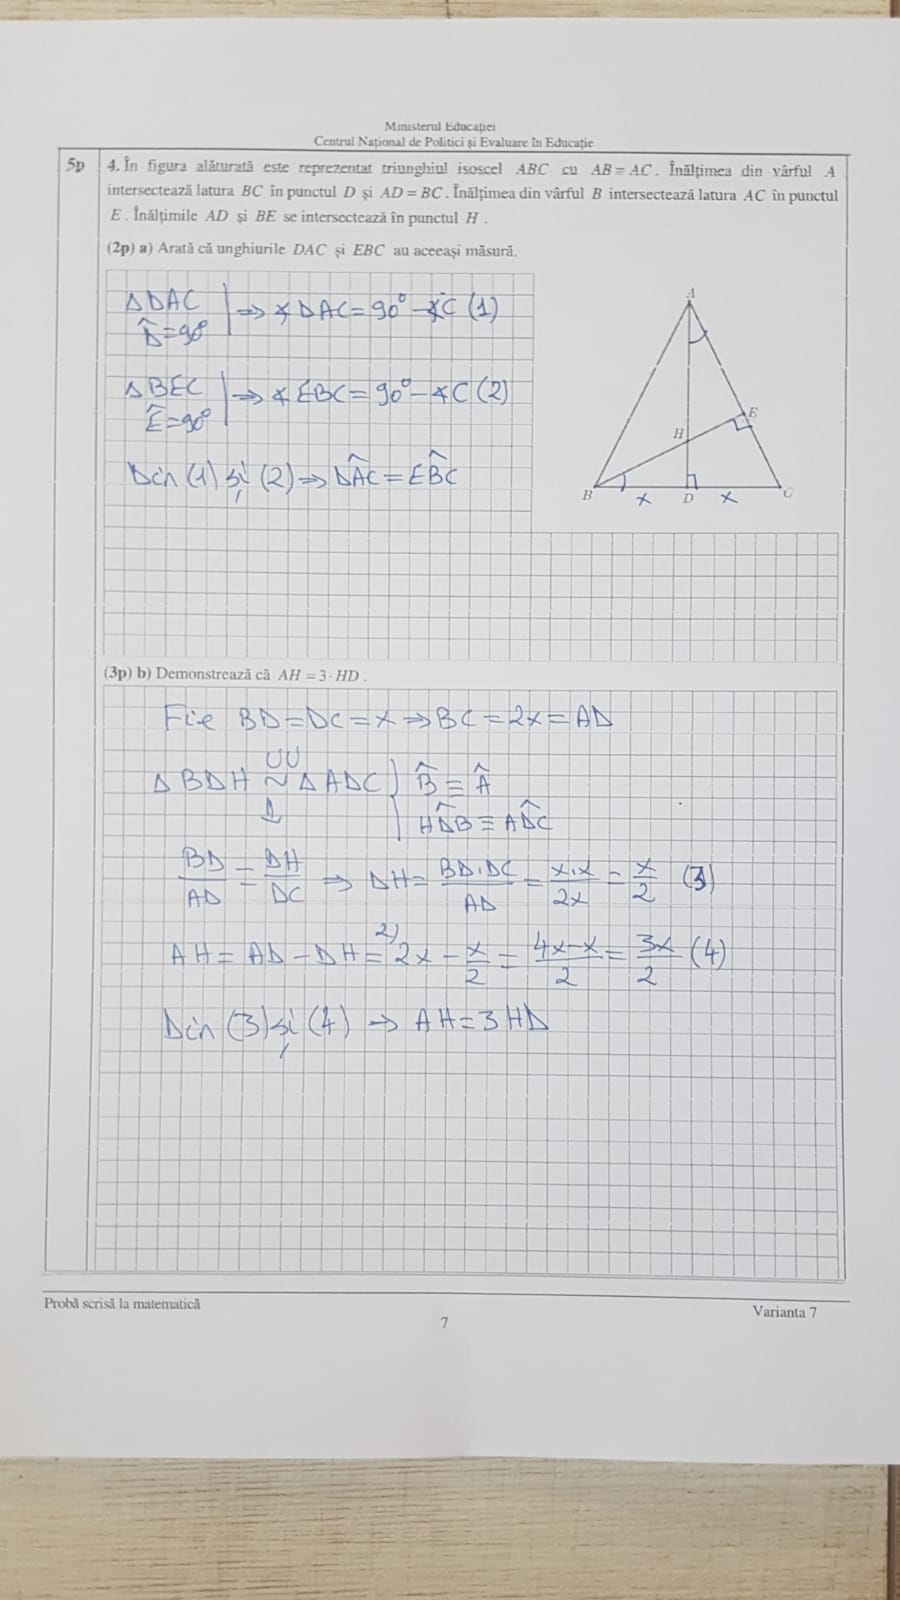 Ministerul Educației
Centrul Național de Politici și Evaluare în Educație
5p
4. În figura alăturată este reprezentat triunghiul isoscel ABC cu AB = AC. Înălțimea din vârful A
intersectează latura BC în punctul D și AD = BC. Înălțimea din vârful B intersectează latura AC în punctul
E. Înălțimile AD și BE se intersectează în punctul H.
(2p) a) Arată că unghiurile DAC și EBC au aceeași măsură.
ΔDAC
D̂=90° ⇒ ∢DAC=90°−∢C (1)
ΔBEC
Ê=90° ⇒ ∢EBC=90°−∢C (2)
Din (1) și (2) ⇒ DÂC = EB̂C
A
E
H
B x D x C
(3p) b) Demonstrează că AH = 3·HD.
Fie BD=DC=x ⇒ BC=2x=AD
UU
ΔBDH ~ ΔADC) B̂ ≡ Â
⇓ HD̂B ≡ AD̂C
BD/AD = DH/DC ⇒ DH = BD·DC/AD = x·x/2x = x/2 (3)
AH = AD − DH = ²⁾2x − x/2 = 4x−x/2 = 3x/2 (4)
Din (3) și (4) ⇒ AH=3HD
Probă scrisă la matematică
Varianta 7
7